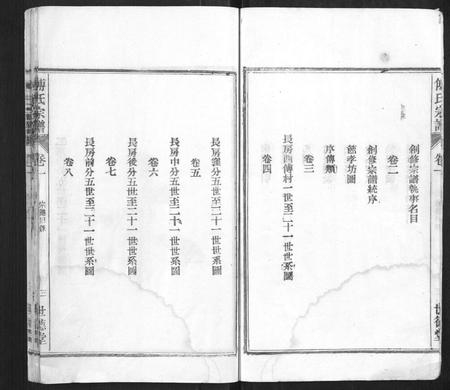 傅氏宗譜
卷一
世德堂
創修宗譜執事名目
卷二
創修宗譜統序
慈孝坊圖
序傳類
卷三
長房西傅村一世至二十一世世系圖
卷四
長房灘分五世至二十一世世系圖
卷五
長房中分五世至二十一世世系圖
卷六
長房後分五世至二十一世世系圖
卷七
長房前分五世至二十一世世系圖
卷八
傅氏宗譜
卷一
三
世德堂